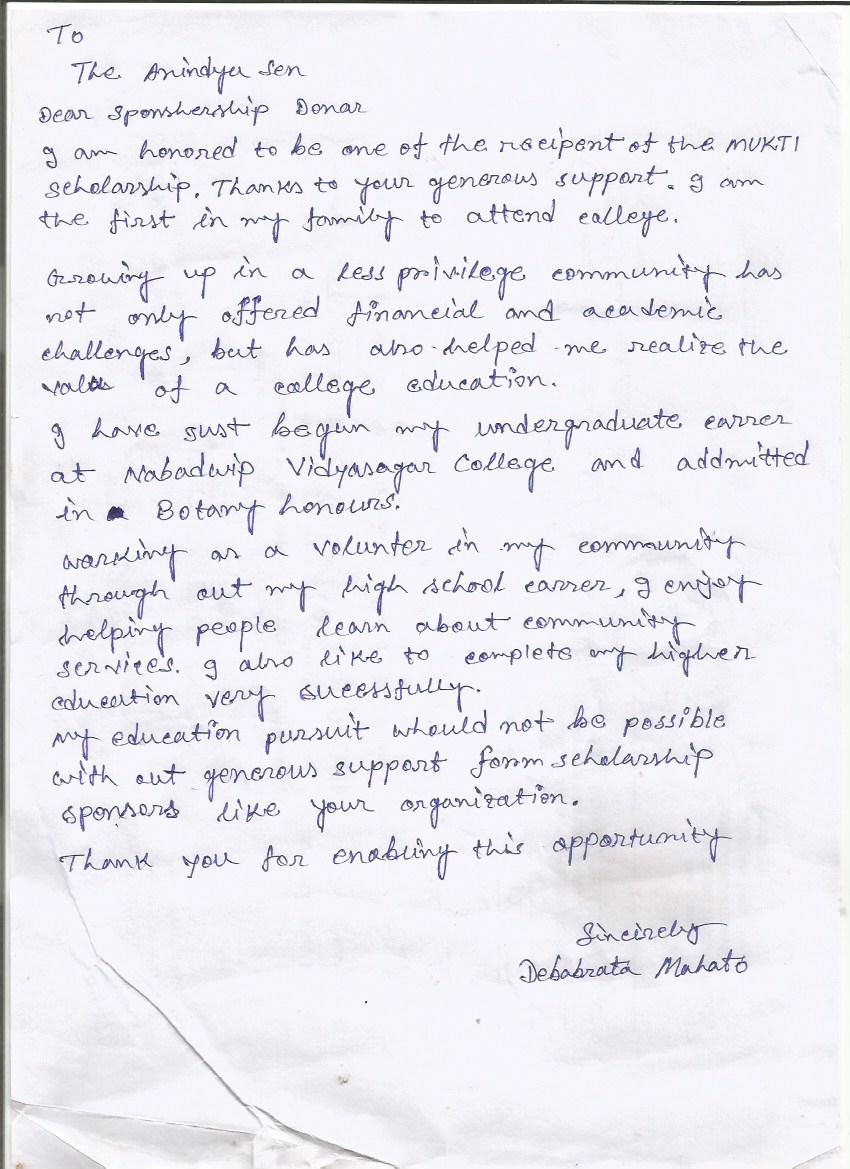 To
The Anindya Sen
Dear Sponshership Donar
I am honored to be one of the recipent of the MUKTI
scholarship. Thanks to your generous support. I am
the first in my family to attend college.
Growing up in a less privilege community has
not only offered financial and academic
challenges, but has also helped me realize the
of a college education.
I have just begun my undergraduate carrer
at Nabadwip Vidyasagar College and addmitted
in Botany honours.
working as a volunter in my community
through out my high school carrer, I enjoy
helping people learn about community
services. I also like to complete my higher
education very sucessfully.
my education pursuit whould not be possible
with out generous support form scholarship
sponsors like your organization.
Thank you for enabling this opportunity
Sincirely
Debabrata Mahato